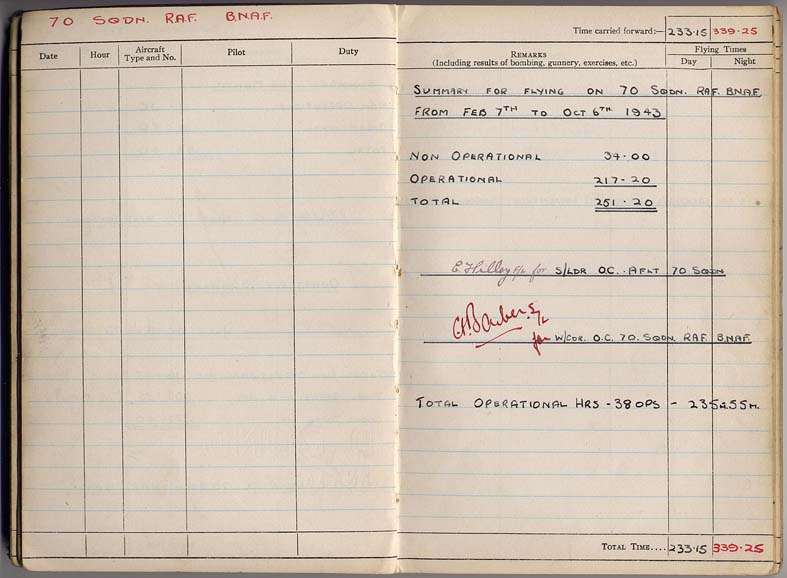 70 SQDN. RAF. B.N.A.F.
Date Hour Aircraft Type and No. Pilot Duty
Time carried forward:— 233·15 339·25
REMARKS
(Including results of bombing, gunnery, exercises, etc.)
Flying Times
Day Night
SUMMARY FOR FLYING ON 70 SQDN. RAF. B.N.A.F.
FROM FEB 7TH TO OCT 6TH 1943
NON OPERATIONAL 34·00
OPERATIONAL 217-20
TOTAL 251·20
F/L for S/LDR O.C. A FLT 70 SQDN
S/L
for W/CDR. O.C. 70. SQDN. RAF. B.N.A.F.
TOTAL OPERATIONAL HRS - 38 OPS - 235H.55M.
TOTAL TIME.... 233·15 339·25